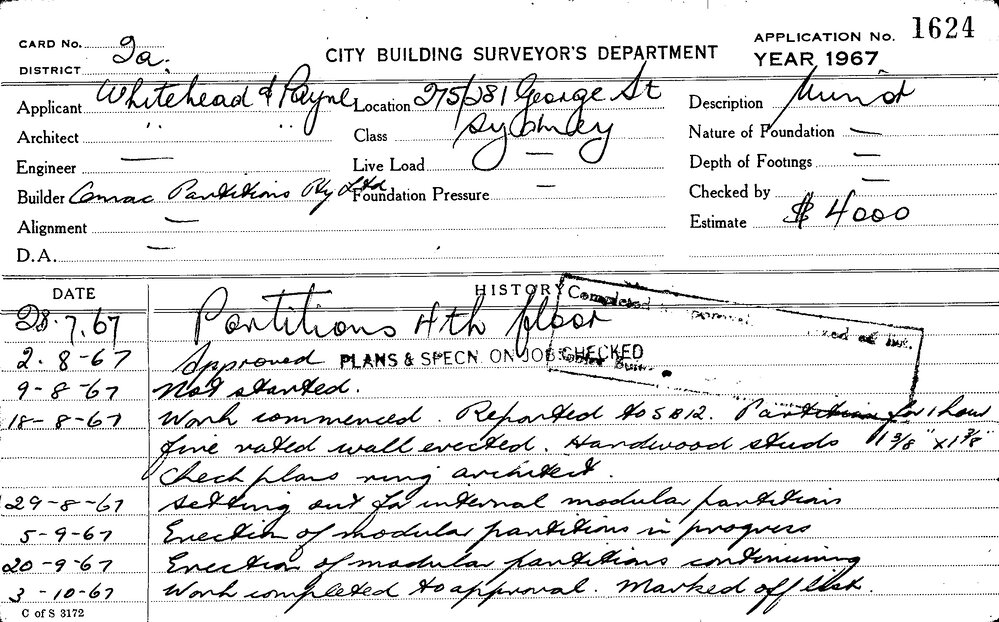 CARD No. 9a.
DISTRICT
CITY BUILDING SURVEYOR'S DEPARTMENT
APPLICATION No. 1624
YEAR 1967
Applicant Whitehead & Payne
Location 275/281 George St
Sydney
Description
Architect " "
Class
Nature of Foundation —
Engineer —
Live Load —
Depth of Footings —
Builder Comac Partitions Pty Ltd
Foundation Pressure —
Checked by —
Alignment —
Estimate $ 4000
D.A. —
DATE
HISTORY
Completed
28.7.67 Partitions 4th floor
2.8-67 Approved PLANS & SPECN. ON JOB CHECKED
9-8-67 Not started.
18-8-67 Work commenced. Reported to SB12. Partition for 1 hour
fire rated wall erected. Hardwood studs 1 3/8" x 1 3/8"
Check plans ring architect.
29-8-67 Setting out for internal modular partitions
5-9-67 Erection of modular partitions in progress
20-9-67 Erection of modular partitions continuing
3-10-67 Work completed to approval. Marked off list.
C of S 3172